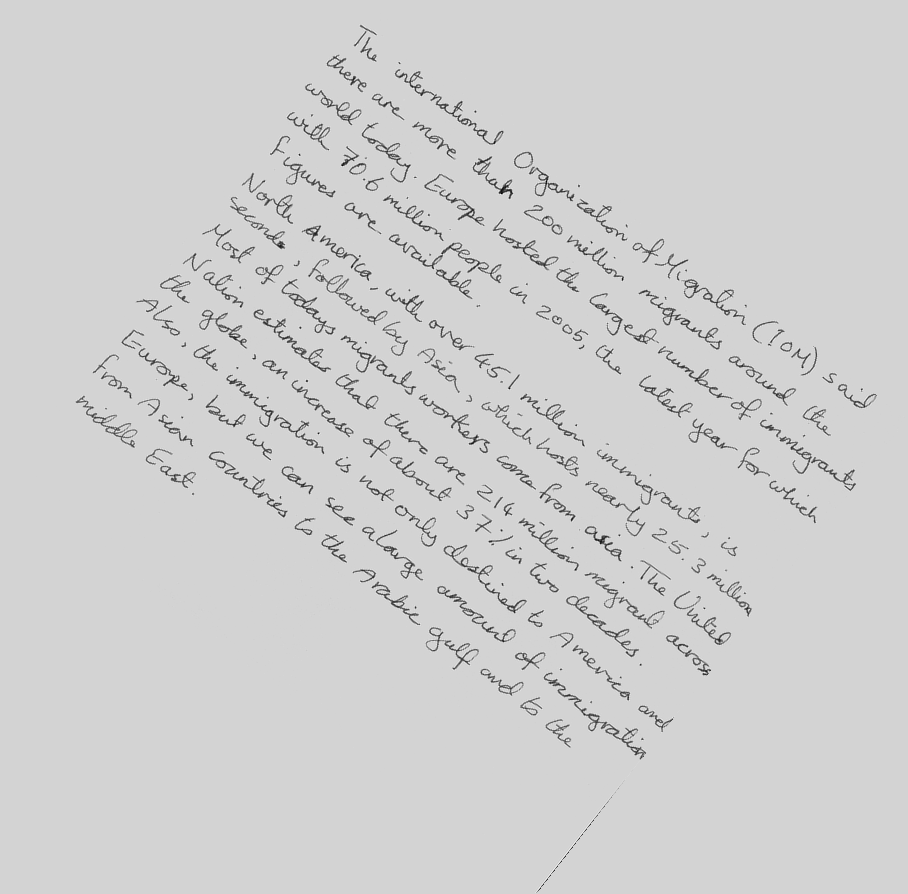 The international Organization of Migration (IOM) said
there are more than 200 million migrants around the
world today. Europe hosted the largest number of immigrants
with 70.6 million people in 2005, the latest year for which
figures are available.
North America, with over 45.1 million immigrants, is
seconds, followed by Asia, which hosts nearly 25.3 million
Most of todays migrants workers come from asia. The United
Nation estimates that there are 214 million migrant across
the globe, an increase of about 37% in two decades.
Also, the immigration is not only destined to America and
Europe, but we can see a large amount of immigration
from Asian countries to the Arabic gulf and to the
middle East.